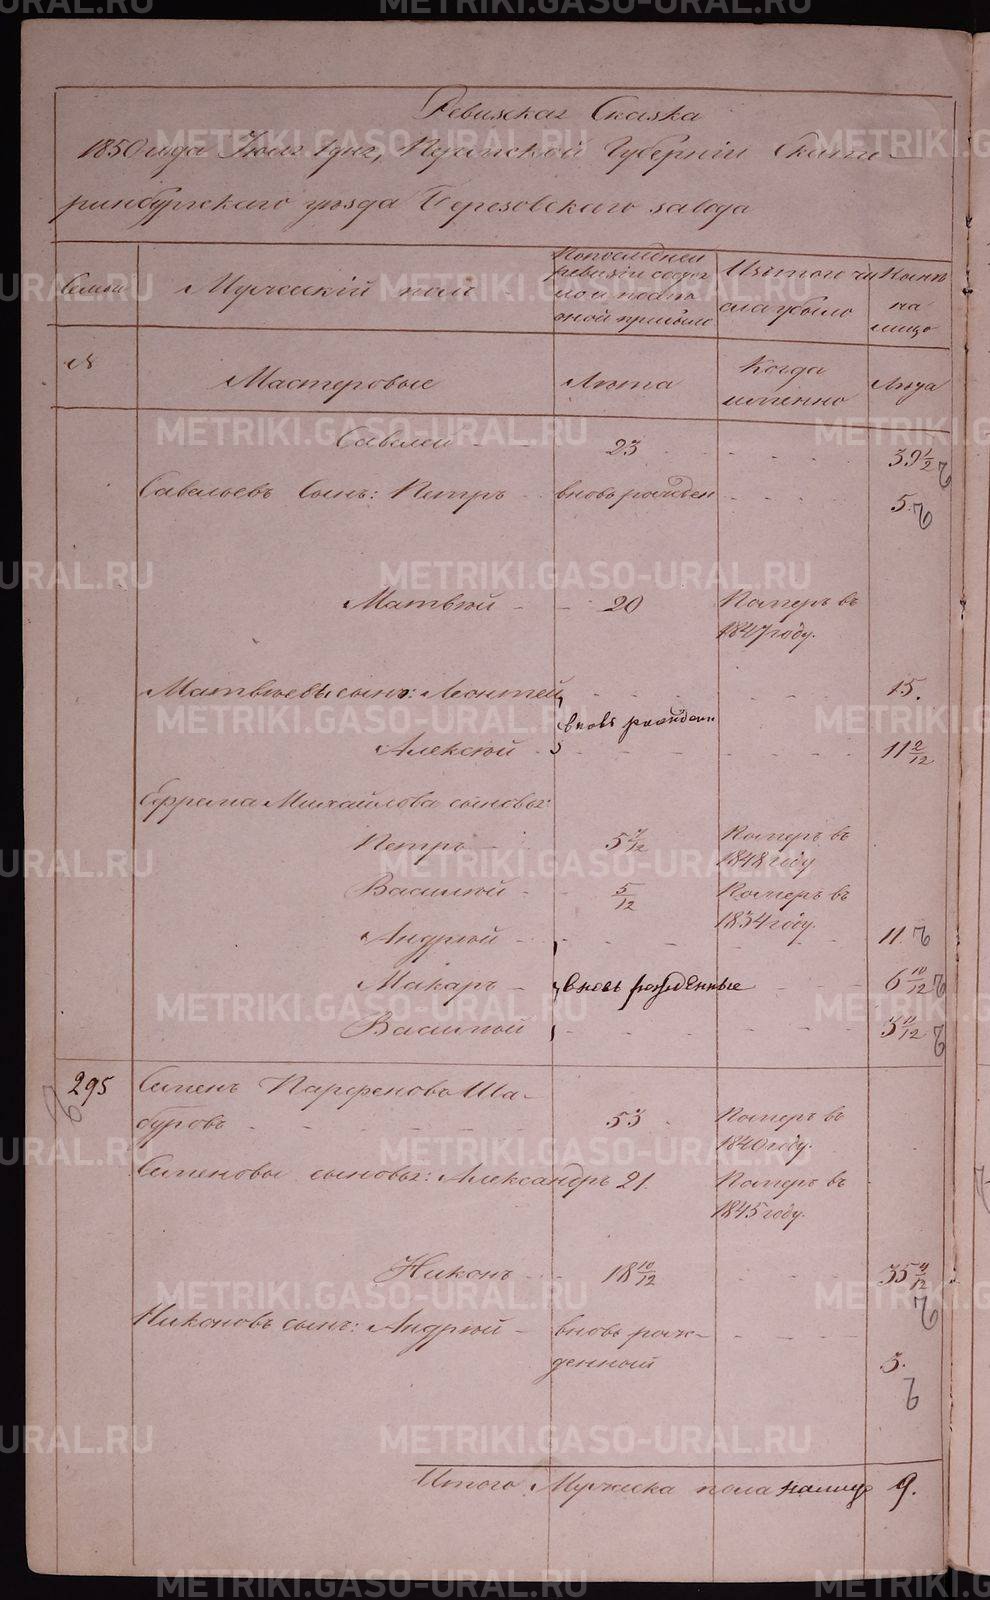 Ревизская Сказка
1850 года Июля 1 дня, Пермской Губернiи Екате-
ринбургскаго уѣзда Березовскаго завода
Семьи
Мужескiй полъ
По последней
ревизiи состоя
ло и после
оной прибыло
Изъ того чи
сла убыло
Нынѣ
на
лицо
№
Мастеровые
Лѣта
Когда
именно
Лѣта
Савелей - - 23 - - - 39 1/2
Савельевъ сынъ: Петръ - вновь рожден - - - 5.
Матвѣй - - 20 Померъ въ
1847 году.
Матвѣевы сынъ: Леонтей - - - - 15.
вновь рожденн
Алексѣй - - - - - 11 2/12
Ефрема Михайлова сыновья:
Петръ - 5 7/12 Померъ въ
1848 году
Василѣй - - 5/12 Померъ въ
1834 году.
Андрѣй - - - - - 11.
Макаръ - вновь рожденные - - - 6 10/12
Василѣй - - - - - 3 11/12
295 Семенъ Парфеновъ Ша-
буровъ - - - 53 . Померъ въ
1840 году.
Семеновы сыновья: Александръ 21. Померъ въ
1845 году.
Никонъ - - 18 10/12 - - - 35 4/12
Никоновъ сынъ: Андрѣй - вновь рож-
денный - - - 3.
Итого Мужеска пола налицо 9.
METRIKI.GASO-URAL.RU